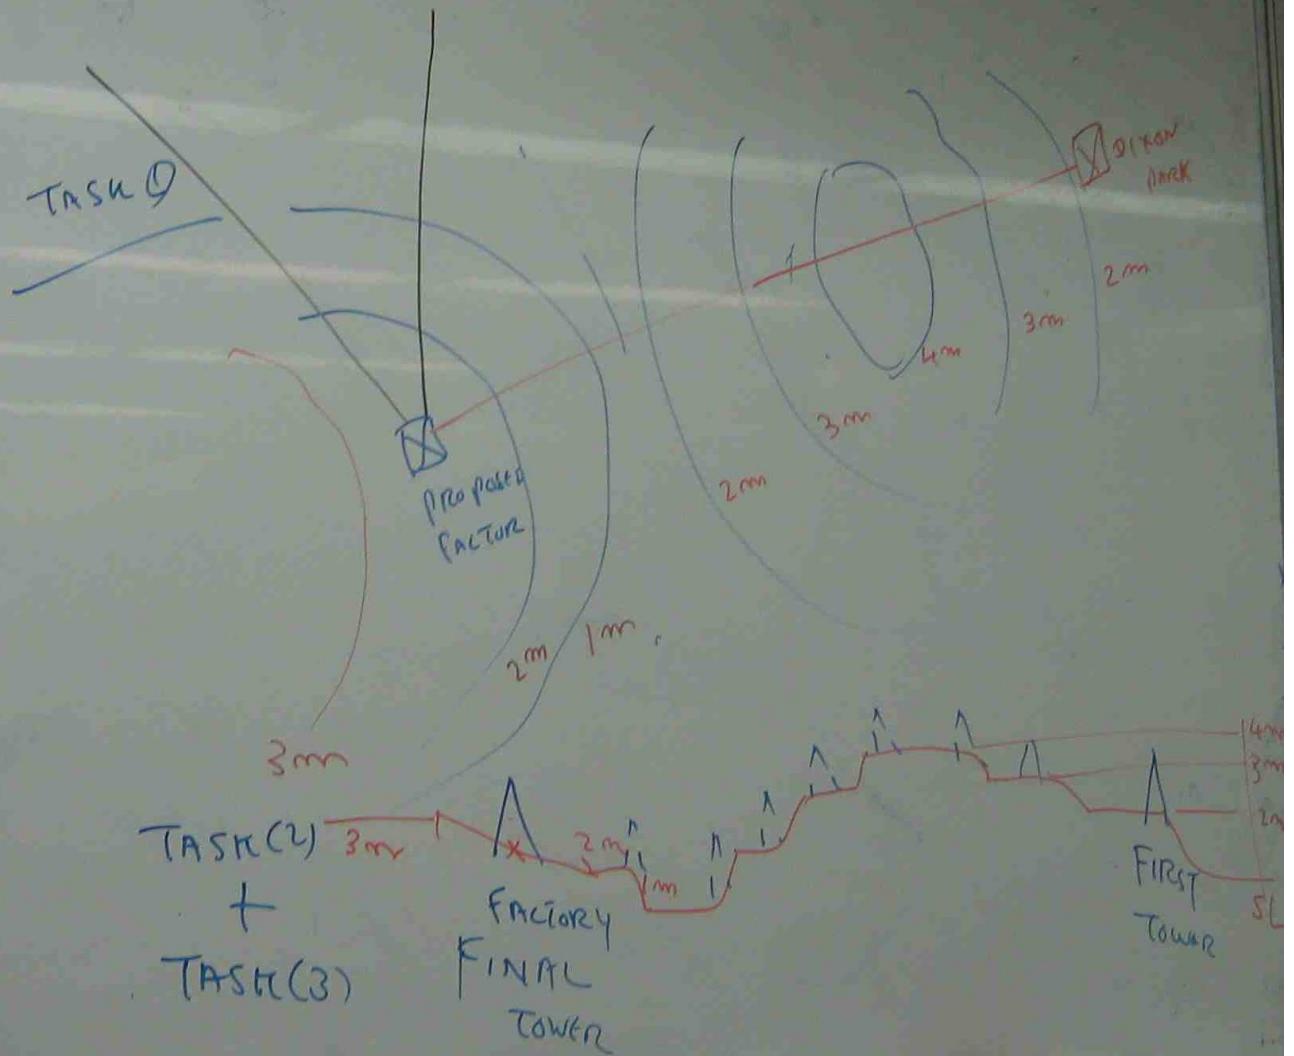 TASK 1
DIXON
PARK
2m
3m
4m
3m
2m
PROPOSED
FACTOR
2m
1m
3m
TASK(2)
+
TASK(3)
3m
2m
1m
FACTORY
FINAL
TOWER
FIRST
TOWER
4m
3m
2m
SL